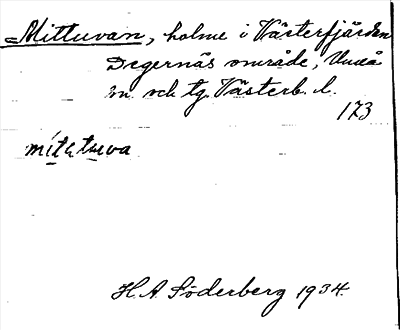 Mittuvan, holme i Västerfjärden
Degernäs område, Umeå
sn. och tg. Västerb. l.
173
mítَtuva
H. A. Söderberg 1934.